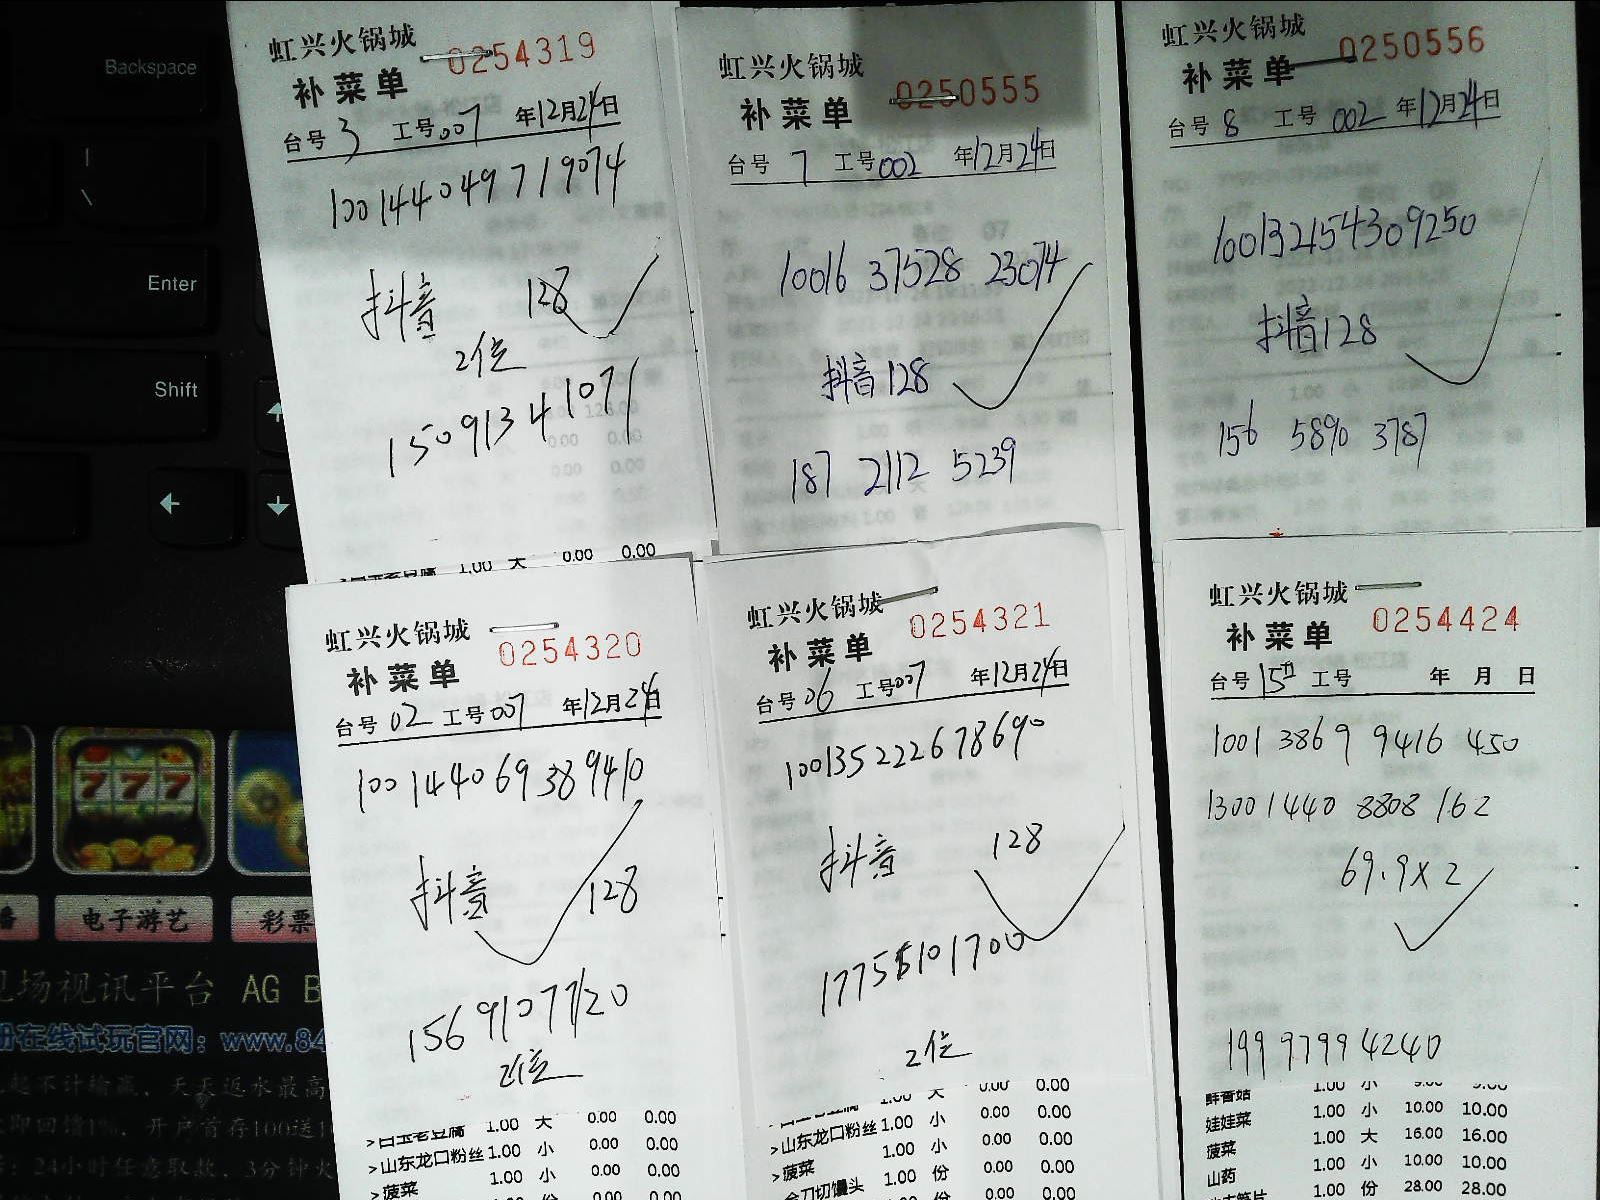 Backspace
|
\
Enter
Shift
虹兴火锅城
0254319
补菜单
台号 3 工号 007 年12月24日
1001440497190 74
抖音 128
2位
15091341071
1.00 大 0.00 0.00
虹兴火锅城
0250555
补菜单
台号 7 工号 002 年12月24日
10016 37528 23074
抖音 128
187 2112 5239
虹兴火锅城
0250556
补菜单
台号 8 工号 002 年12月24日
100132154309250
抖音 128
156 5890 3787
虹兴火锅城
0254320
补菜单
台号 02 工号 007 年12月24日
100144069389410
抖音 128
15691077120
2位
>白玉老豆腐 1.00 大 0.00 0.00
>山东龙口粉丝 1.00 小 0.00 0.00
>菠菜 1.00 小 0.00 0.00
1.00 份 0.00 0.00
虹兴火锅城
0254321
补菜单
台号 06 工号 007 年12月24日
100135222678690
抖音 128
17755101700
2位
1.00 大 0.00 0.00
>山东龙口粉丝 1.00 小 0.00 0.00
>菠菜 1.00 小 0.00 0.00
金刀切馒头 1.00 份 0.00 0.00
虹兴火锅城
0254424
补菜单
台号 15 工号 年 月 日
1001 3869 9416 450
13001440 8808 162
69.9×2
199 9799 4240
鲜香菇 1.00 小 9.00 9.00
娃娃菜 1.00 小 10.00 10.00
菠菜 1.00 大 16.00 16.00
山药 1.00 小 10.00 10.00
1.00 份 28.00 28.00
电子游艺
彩票
场视讯平台 AG B
册在线试玩官网：www.84
起不计输赢，天天返水最高
即回馈1%，开户首存100送1
：24小时任意取款，3分钟火